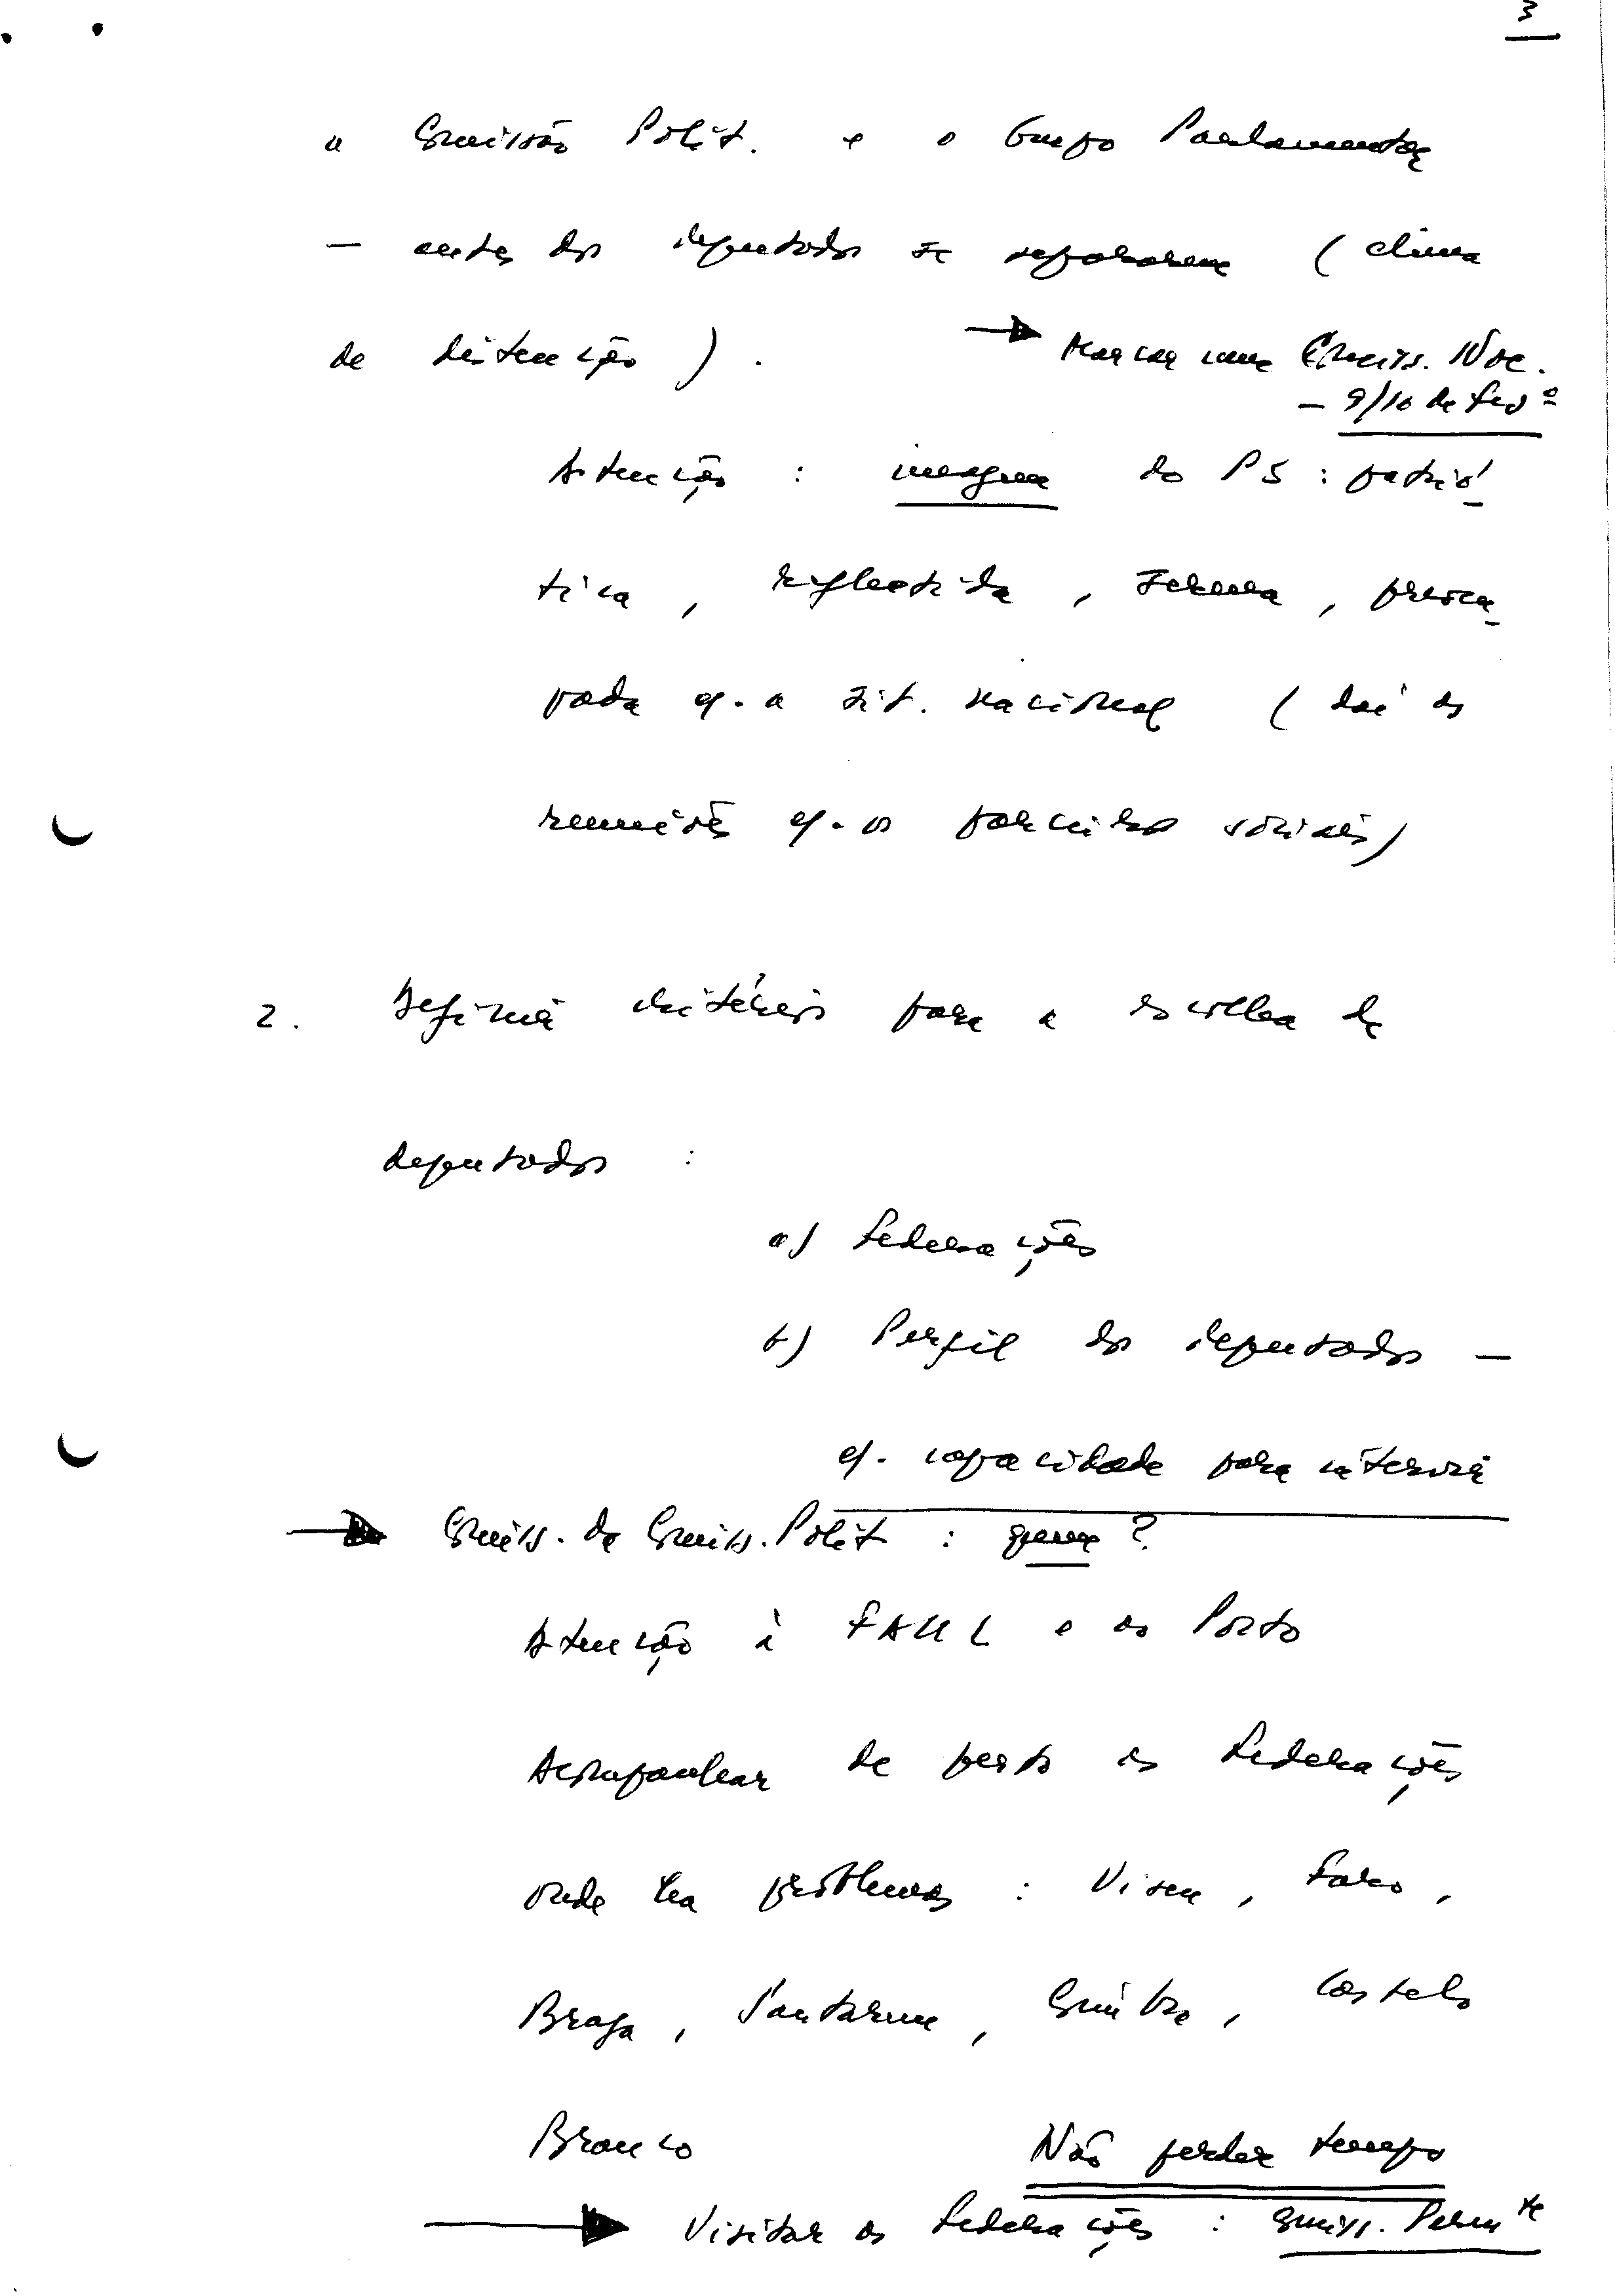 3
a Comissão Polít. e o Grupo Parlamentar
— antes dos deputados se separarem (clima
de distenção).
→ Marcar uma Comiss. Nac.
— 9/10 de Fevº
Atenção : imagem do PS : patrió-
tica, reflectida, serena, preocu-
pada c/. a sit. nacional (daí as
reuniões c/. os parceiros sociais)
2. Definir critérios para a escolha de
deputados :
a) Federações
b) Perfil dos deputados —
c/. capacidade para intervir
→ Comiss. da Comiss. Polít : quem ?
Atenção à FAUL e ao Porto
Acompanhar de perto as Federações
onde há problemas : Viseu, Faro,
Braga, Santarém, Coimbra, Castelo
Branco
Não perder tempo
→ Visitar as Federações : Comiss. Permte